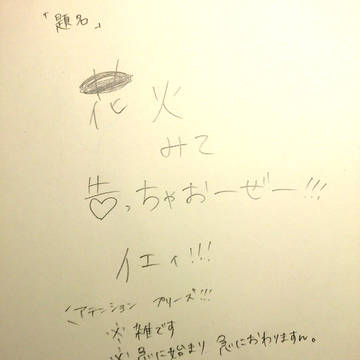 「題名」
花火
みて
告っちゃおーぜー!!!
イエィ!!!
アテンション プリーズ!!!
※雑です
※急に始まり 急におわりますん。